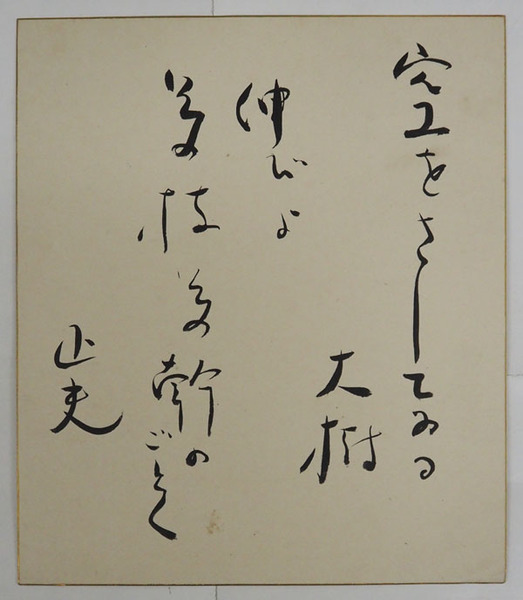 空をさしてゐる
大樹
伸びよ
その枝その幹の
ごとく
正夫